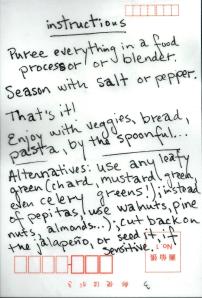 instructions
Puree everything in a food
processor or blender.
Season with salt or pepper.
That's it!
Enjoy with veggies, bread,
pasta, by the spoonful...
Alternatives: use any leafy
green (chard, mustard green,
even celery greens!); instead
of pepitas, use walnuts, pine
nuts, almonds...); cut back on
the jalapeño, or seed it, if
sensitive.
3